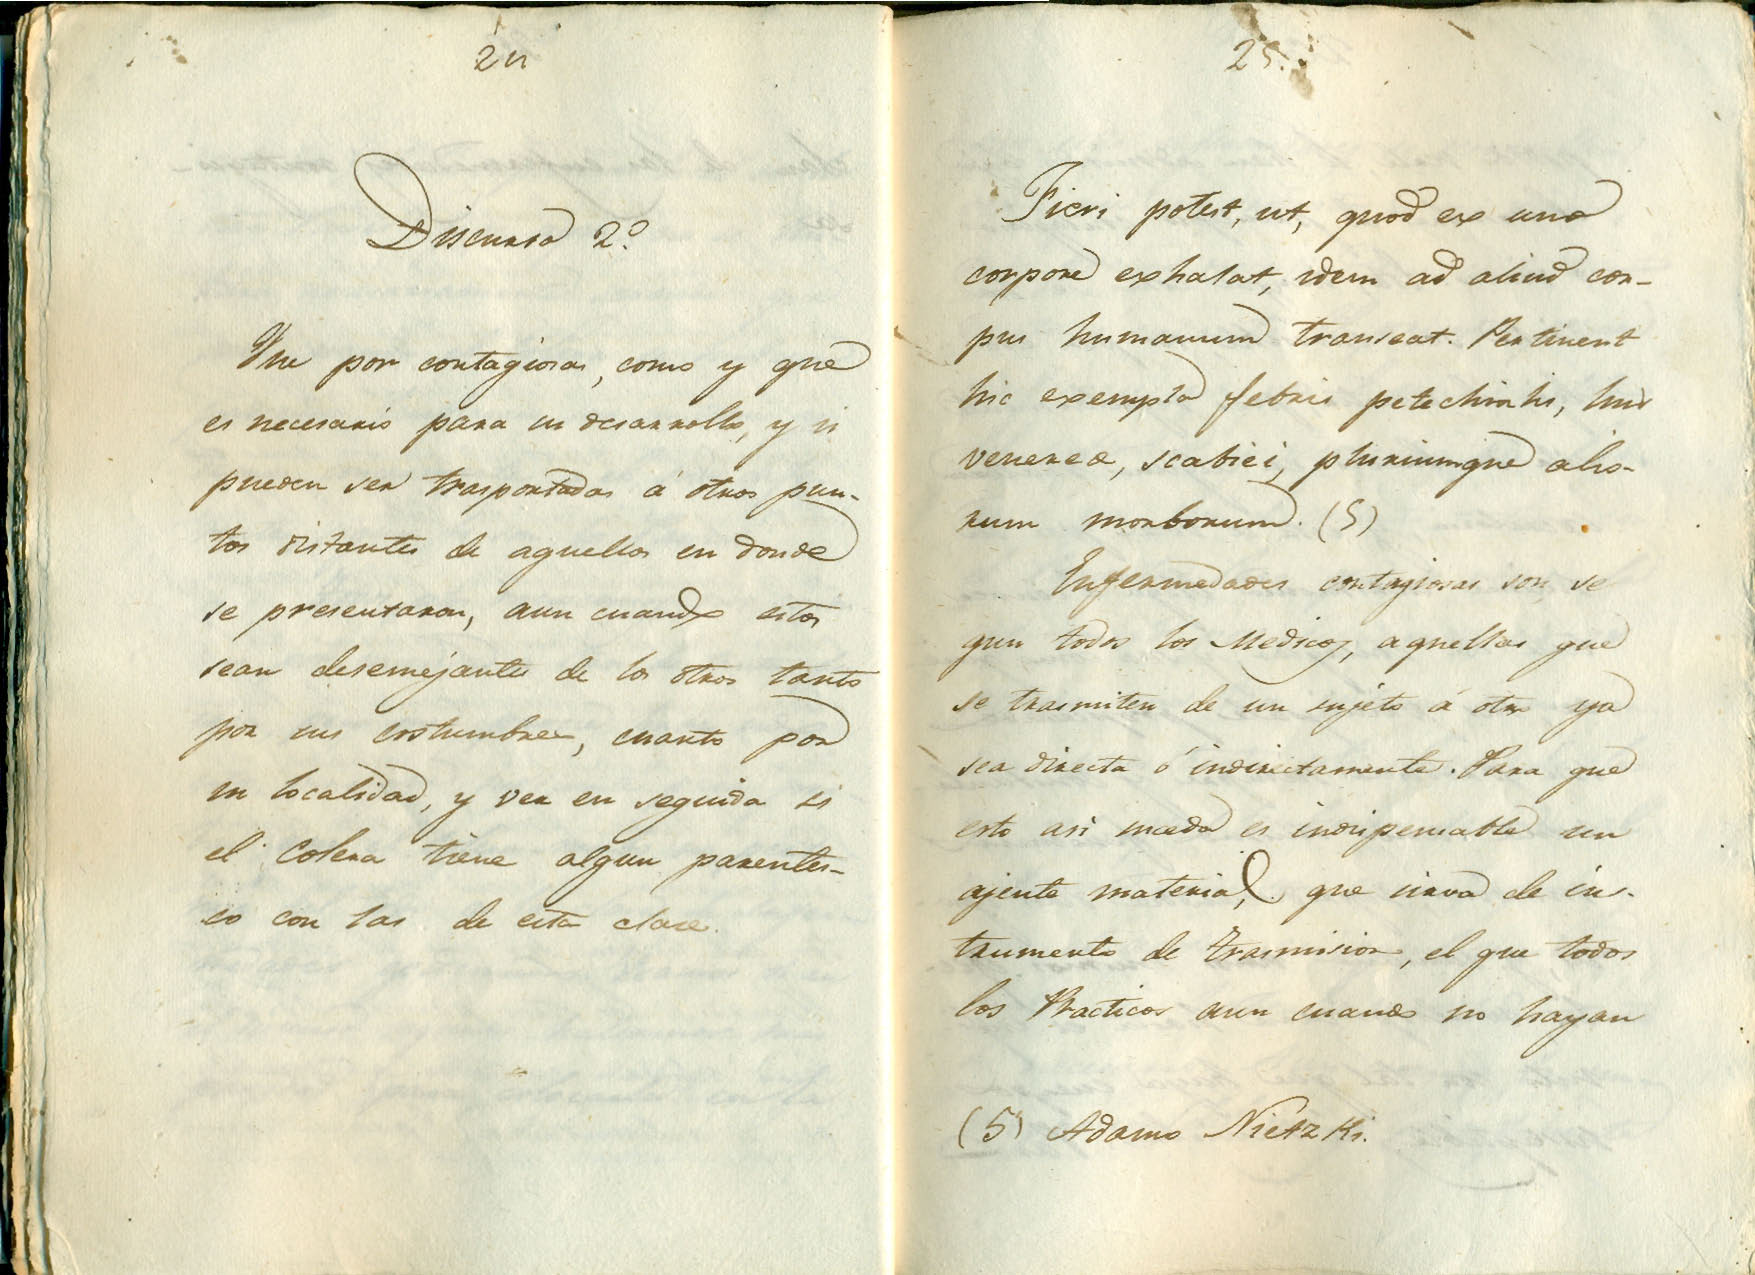 24
Discurso 2º
por contagiosas, como y que
es necesario para su desarrollo, y si
pueden ser trasportadas á otros pun-
tos distantes de aquellos en donde
se presentaron, aun cuando estos
sean desemejantes de los otros tanto
por sus costumbres, cuanto por
su localidad, y ver en seguida si
el Colera tiene algun parentes-
co con las de esta clase.
25.
Fieri potest, ut, quod ex uno
corpore exhalat, idem ad aliud cor-
pus humanum transeat. Pertinent
hic exempla febris petechialis, luis
venereæ, scabiei, pluriumque alio-
rum morborum. (5)
Enfermedades contagiosas son, se
gun todos los Medicos, aquellas que
se trasmiten de un sujeto á otro ya
sea directa ó indirectamente. Para que
esto asi suceda es indispensable un
ajente material, que sirva de ins-
trumento de trasmision, el que todos
los Practicos aun cuando no hayan
(5) Adamo Nietzki.